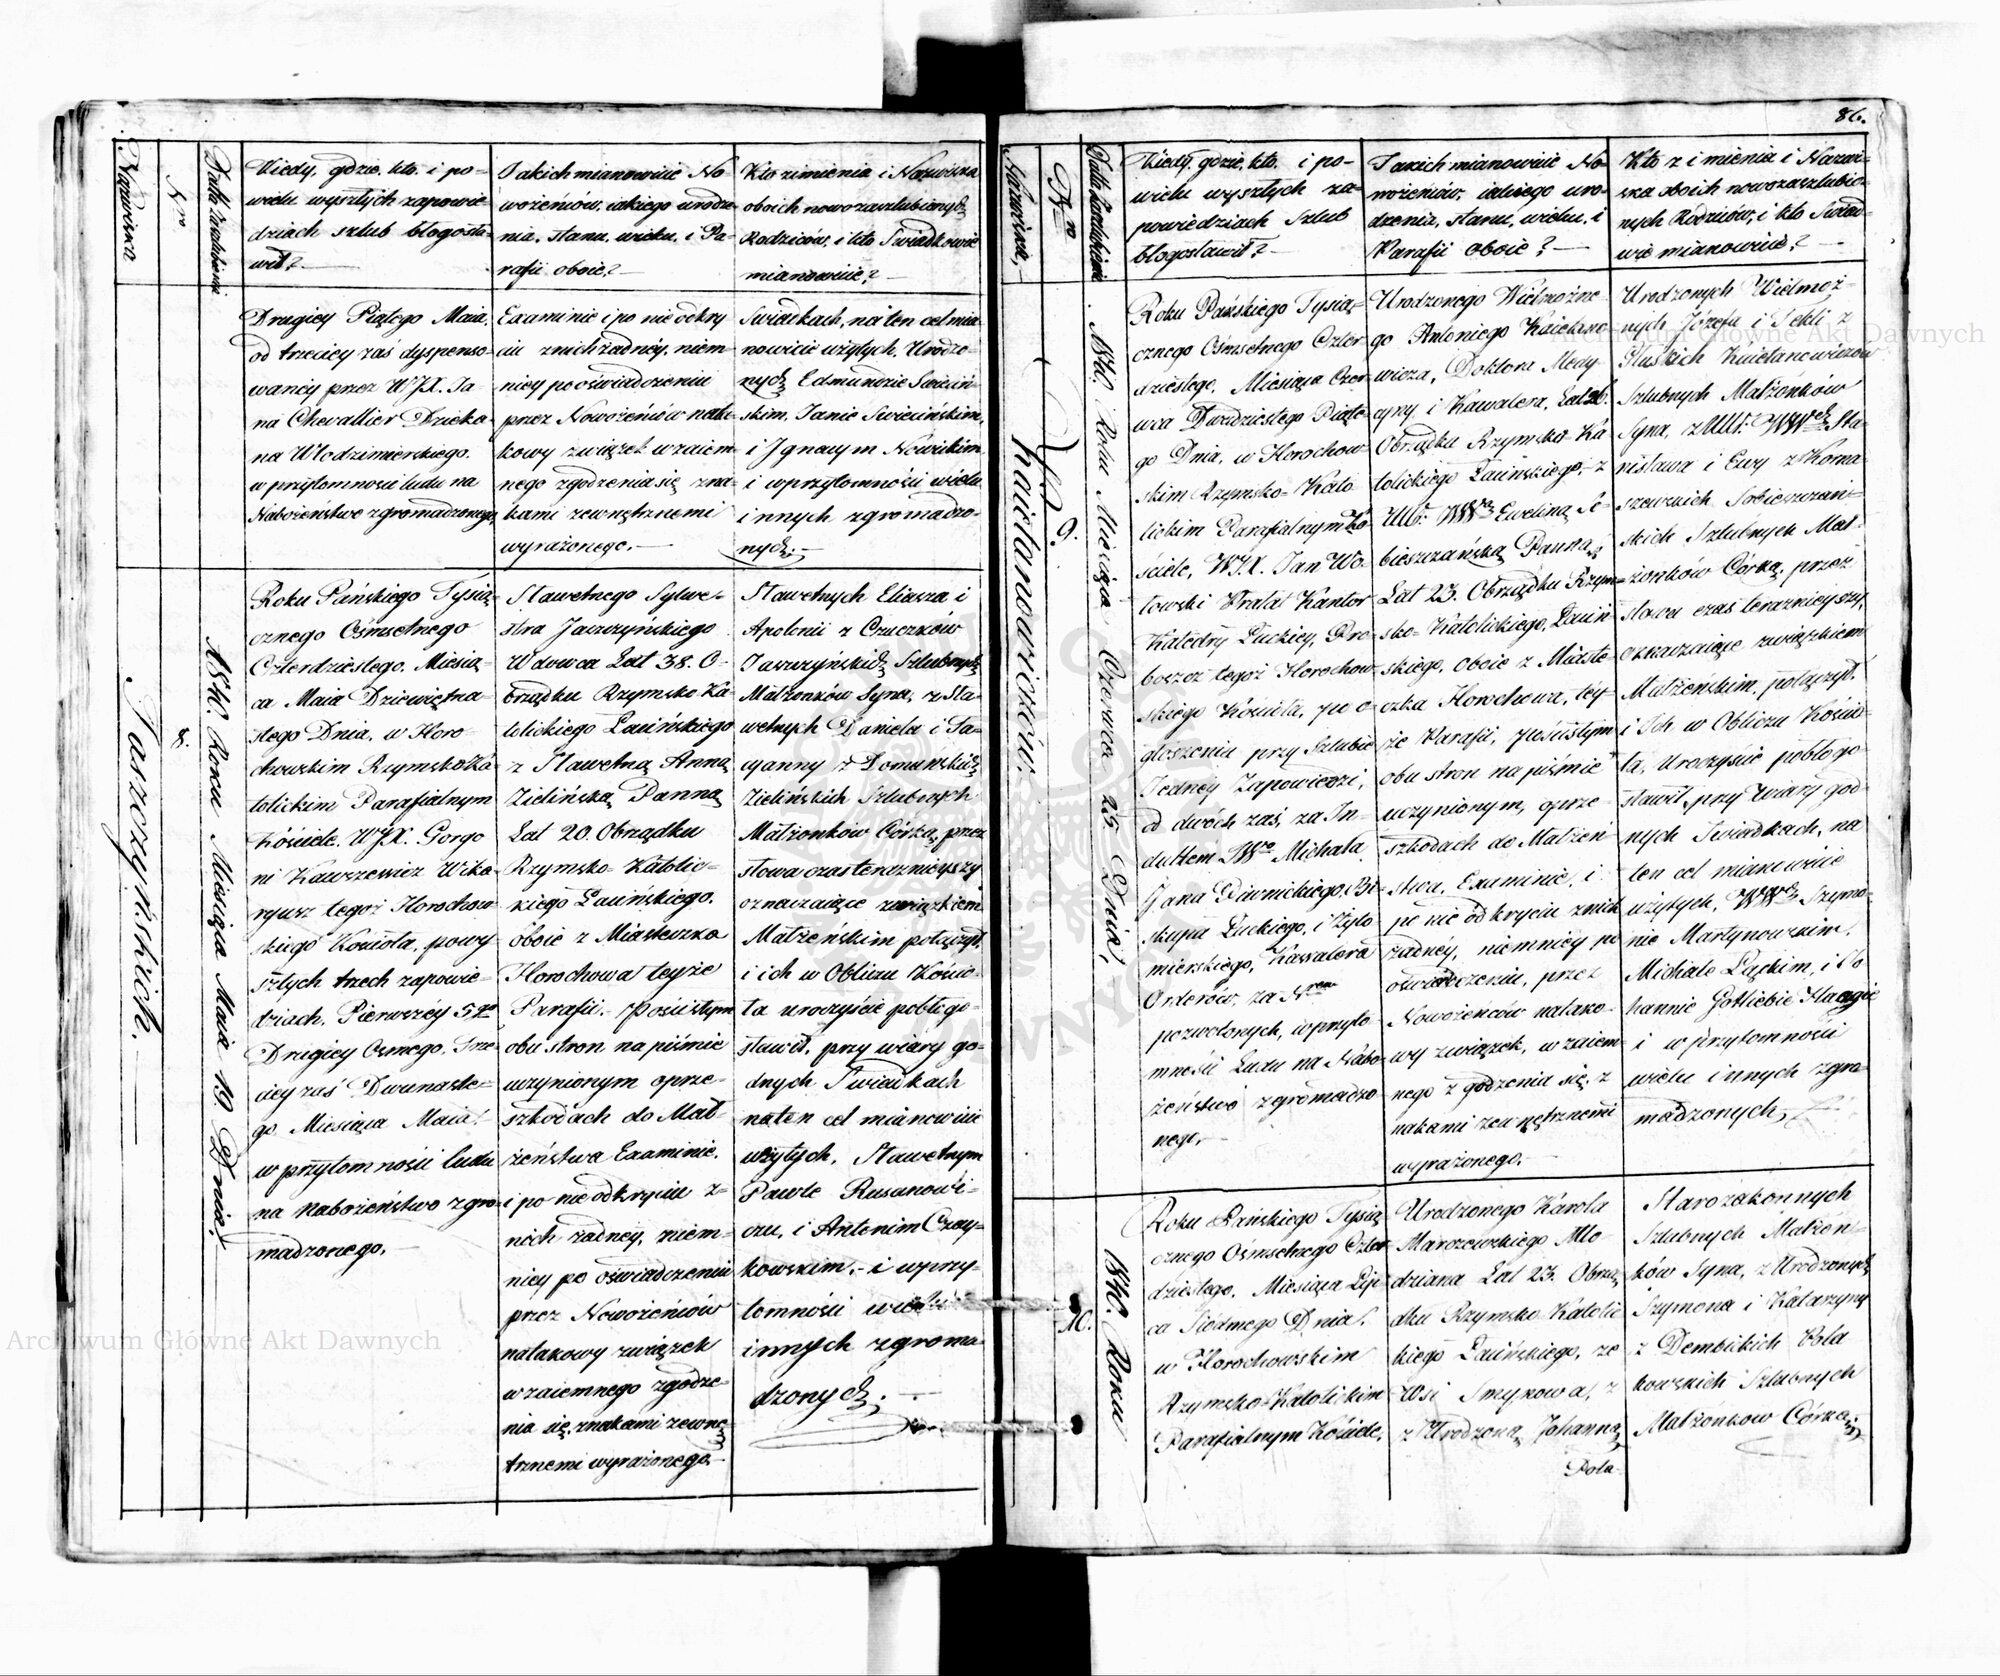 Nazwiska
Nro
Data Zaślubienia
Kiedy, gdzie, kto, i po-
wielu wyszłych zapowie-
dziach szlub błogosła-
wił?
Jakich mianowicie No-
wożeńców, iakiego urodze-
nia, stanu, wieku, i Pa-
rafii oboie?
Kto z imienia i Nazwiska
oboich nowozaszlubionych
Rodziców, i kto Świadkowie
mianowicie?
Drugiey Piątego Maia,
od trzeciey zaś dyspenso-
waney przez WJX. Ja-
na Chevallier Dzieka-
na Włodzimierskiego.
w przytomności ludu na
Nabożeństwo zgromadzonego,
Examinie i po nie odkry
ciu znich żadney, niem-
niey po oświadczeniu
przez Nowożeńców nata-
kowy związek wzaiem-
nego zgodzenia się zna-
kami zewnętrznemi
wyrażonego.
Świadkach, na ten cel mia-
nowicie użytych, Urodzo-
nych Edmundzie Święciń-
skim, Janie Święcińskim,
i Jgnacym Nowickim,
i wprzytomności wielu
innych zgromadzo-
nych.
Jaszczyńskich.
8.
1840. Roku Miesiąca Maia 19 Dnia.
Roku Pańskiego Tysią-
cznego Ośmsetnego
Czterdziestego, Miesią-
ca Maia Dziewiętna-
stego Dnia, w Horo-
chowskim Rzymsko Ka-
tolickim Parafialnym
Kościele. WJX. Gorgo
ni Kawszewicz Wika-
ryusz tegoż Horochow-
skiego Kościoła, powy
szłych trzech zapowie-
dziach, Pierwszéy 5go
Drugiey Osmego, Trze-
ciey zaś Dwunaste-
go Miesiąca Maia.
w przytomności ludu
na nabożeństwo zgro-
madzonego.
Sławetnego Sylwe-
stra Jaszczyńskiego
Wdowca Lat 38. O-
brządku Rzymsko Ka-
tolickiego Łacińskiego
z Sławetną Anną
Zielińską Panną
Lat 20. Obrządku
Rzymsko-Katolic-
kiego Łacińskiego,
oboie z Miasteczka
Horochowa teyże
Parafii, po ścisłym
obu stron na piśmie
uczynionym o prze-
szkodach do Mał-
żeństwa Examinie,
i po nie odkryciu z-
nich żadney, niem-
niey po oświadczeniu
przez Nowożeńców
natakowy związek
wzaiemnego zgodze-
nia się, znakami zewnę-
trznemi wyrażonego.
Sławetnych Eliasza i
Apolonii z Czuczków
Jaszczyńskich Szlubnych
Małżonków Syna, z Sła-
wetnych Daniela i Ta-
cyanny z Domańskich
Zielińskich Szlubnych
Małżonków Córką, przez
słowa czas teraznieyszy
oznaczaiące związkiem
Małżeńskim połączył,
i ich w Obliczu Kościo-
ła uroczyście pobłogo-
sławił, przy wiary go-
dnych Świadkach
na ten cel mianowicie
użytych, Sławetnym
Pawle Rusanowi-
czu, i Antonim Czay-
kowskim, i wprzy-
tomności wielu
innych zgroma-
dzonych.
86.
Nazwiska,
Nro
Data Zaszlubienia
Kiedy, gdzie, kto, i po-
wielu wyszłych za-
powiedziach Szlub
błogosławił?
Jakich mianowicie No-
wożeńców, iakiego uro-
dzenia, stanu, wieku, i
Parafii oboie?
Kto z imienia i Nazwi-
ska oboich nowozaszlubio-
nych Rodziców, i kto Świad-
wie mianowicie?
Kaietanowiczów.
9.
1840. Roku Miesiąca Czerwca 25. Dnia.
Roku Pańskiego Tysią-
cznego Ośmsetnego Czter-
dziestego, Miesiąca Czer-
wca Dwudziestego Piąte-
go Dnia, w Horochow-
skim Rzymsko-Kato
lickim Parafialnym Ko-
ściele, WJX. Jan Wo-
łowski Prałat Kantor
Katedry Łuckiey, Pro-
boszcz tegoż Horochow-
skiego Kościoła, po o-
głoszeniu przy Szlubie
Jedney Zapowiedzi,
od dwóch zaś, za In-
dultem JWgo Michała
Jana Piwnickiego, Bi-
skupa Łuckiego, i Żyto-
mierskiego, Kawalera
Orderów, za Nrem
pozwolonych, w przyto-
mności Ludu na Nabo-
żeństwo zgromadzo
nego,
Urodzonego Wielmożne-
go Antoniego Kaietano-
wicza, Doktora Medy-
cyny i Kawalera, Lat 26.
Obrządku Rzymsko-Ka
tolickiego Łacińskiego, z
Eweliną So-
bieszczańską Panną,
Lat 23. Obrządku Rzym-
sko-Katolickiego, Łaciń-
skiego, oboie z Miaste-
czka Horochowa, tey-
że Parafii, po ścisłym
obu stron na piśmie
uczynionym, o prze-
szkodach do Małżeń-
stwa, Examinie, i
po nie odkryciu znich
żadney, niemniey po
oświadczeniu, przez
Nowożeńców natako-
wy związek, w zaiem-
nego zgodzenia się, z
nakami zewnętrznemi
wyrażonego.
Urodzonych Wielmoż-
nych Józefa i Tekli z
Słuskich Kaietanowiczów
Szlubnych Małżonków
Syna, z Sta-
nisława i Ewy z Koma-
szewskich Sobieszczań-
skich Szlubnych Mał-
żonków Córką, przez
słowa czas teraznieyszy,
oznaczaiące związkiem
Małżeńskim, połączył,
i Ich w Obliczu Kościo-
ła, Uroczyście pobłogo-
sławił, przy Wiary god-
nych Świadkach, na
ten cel mianowicie
użytych, Szymo-
nie Martynowskim,
Michale Łąckim, i Jo-
hannie Gottliebie Haagie
i w przytomności
wielu innych zgro-
madzonych,
10.
1840. Roku
Roku Pańskiego Tysią
cznego Ośmsetnego Czter
dziestego, Miesiąca Lip
ca Siódmego Dnia.
w Horochowskim
Rzymsko-Katolickim
Parafialnym Kościele,
Urodzonego Karola
Marczewskiego Mło-
dziana Lat 23. Obrzą-
dku Rzymsko Katolic
kiego Łacińskiego, ze
Wsi Smykowa, z
z Urodzoną Johanną
Pola-
Starozakonnych
Szlubnych Małżon-
ków Syna, z Urodzonych
Szymona i Katarzyny
z Dembickich Pola
kowskich Szlubnych
Małżonkow Córką;
Archiwum Główne Akt Dawnych
Archiwum Główne Akt Dawnych